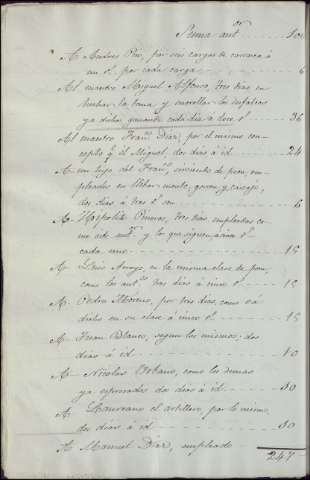 Suma ant.or 101
A Andres Pio, por seis cargas de carranca á
un r.l por cada carga 6
Al maestro Miguel Alfonso, tres dias en
la toma y
ya dichas ganando cada dia á doce r.s 36
Al maestro Fran.co Diaz, por el mismo con-
cepto q.e el Miguel, dos dias á id. 24
A un hijo del Fran.co, sirviendo de peon, em-
pleados en llebar mezcla, y cascajo,
dos dias á tres r.s son 6
A Hipolito tres dias empleados co-
mo arte y los que siguen á cinco r.s
cada uno 15
A Luis Arroyo, en la misma clase de peon,
como los ant.res tres dias á cinco r.s 15
A Pedro Moreno, por tres dias, como
en su clase á cinco r.s 15
A Juan Blanco, segun los mismos; dos
dias á id. 10
A Nicolas como los demas
ya espresados dos dias á id. 10
A Laureano el artillero, por lo mismo,
dos dias á id. 10
A Manuel Diaz, empleado
247